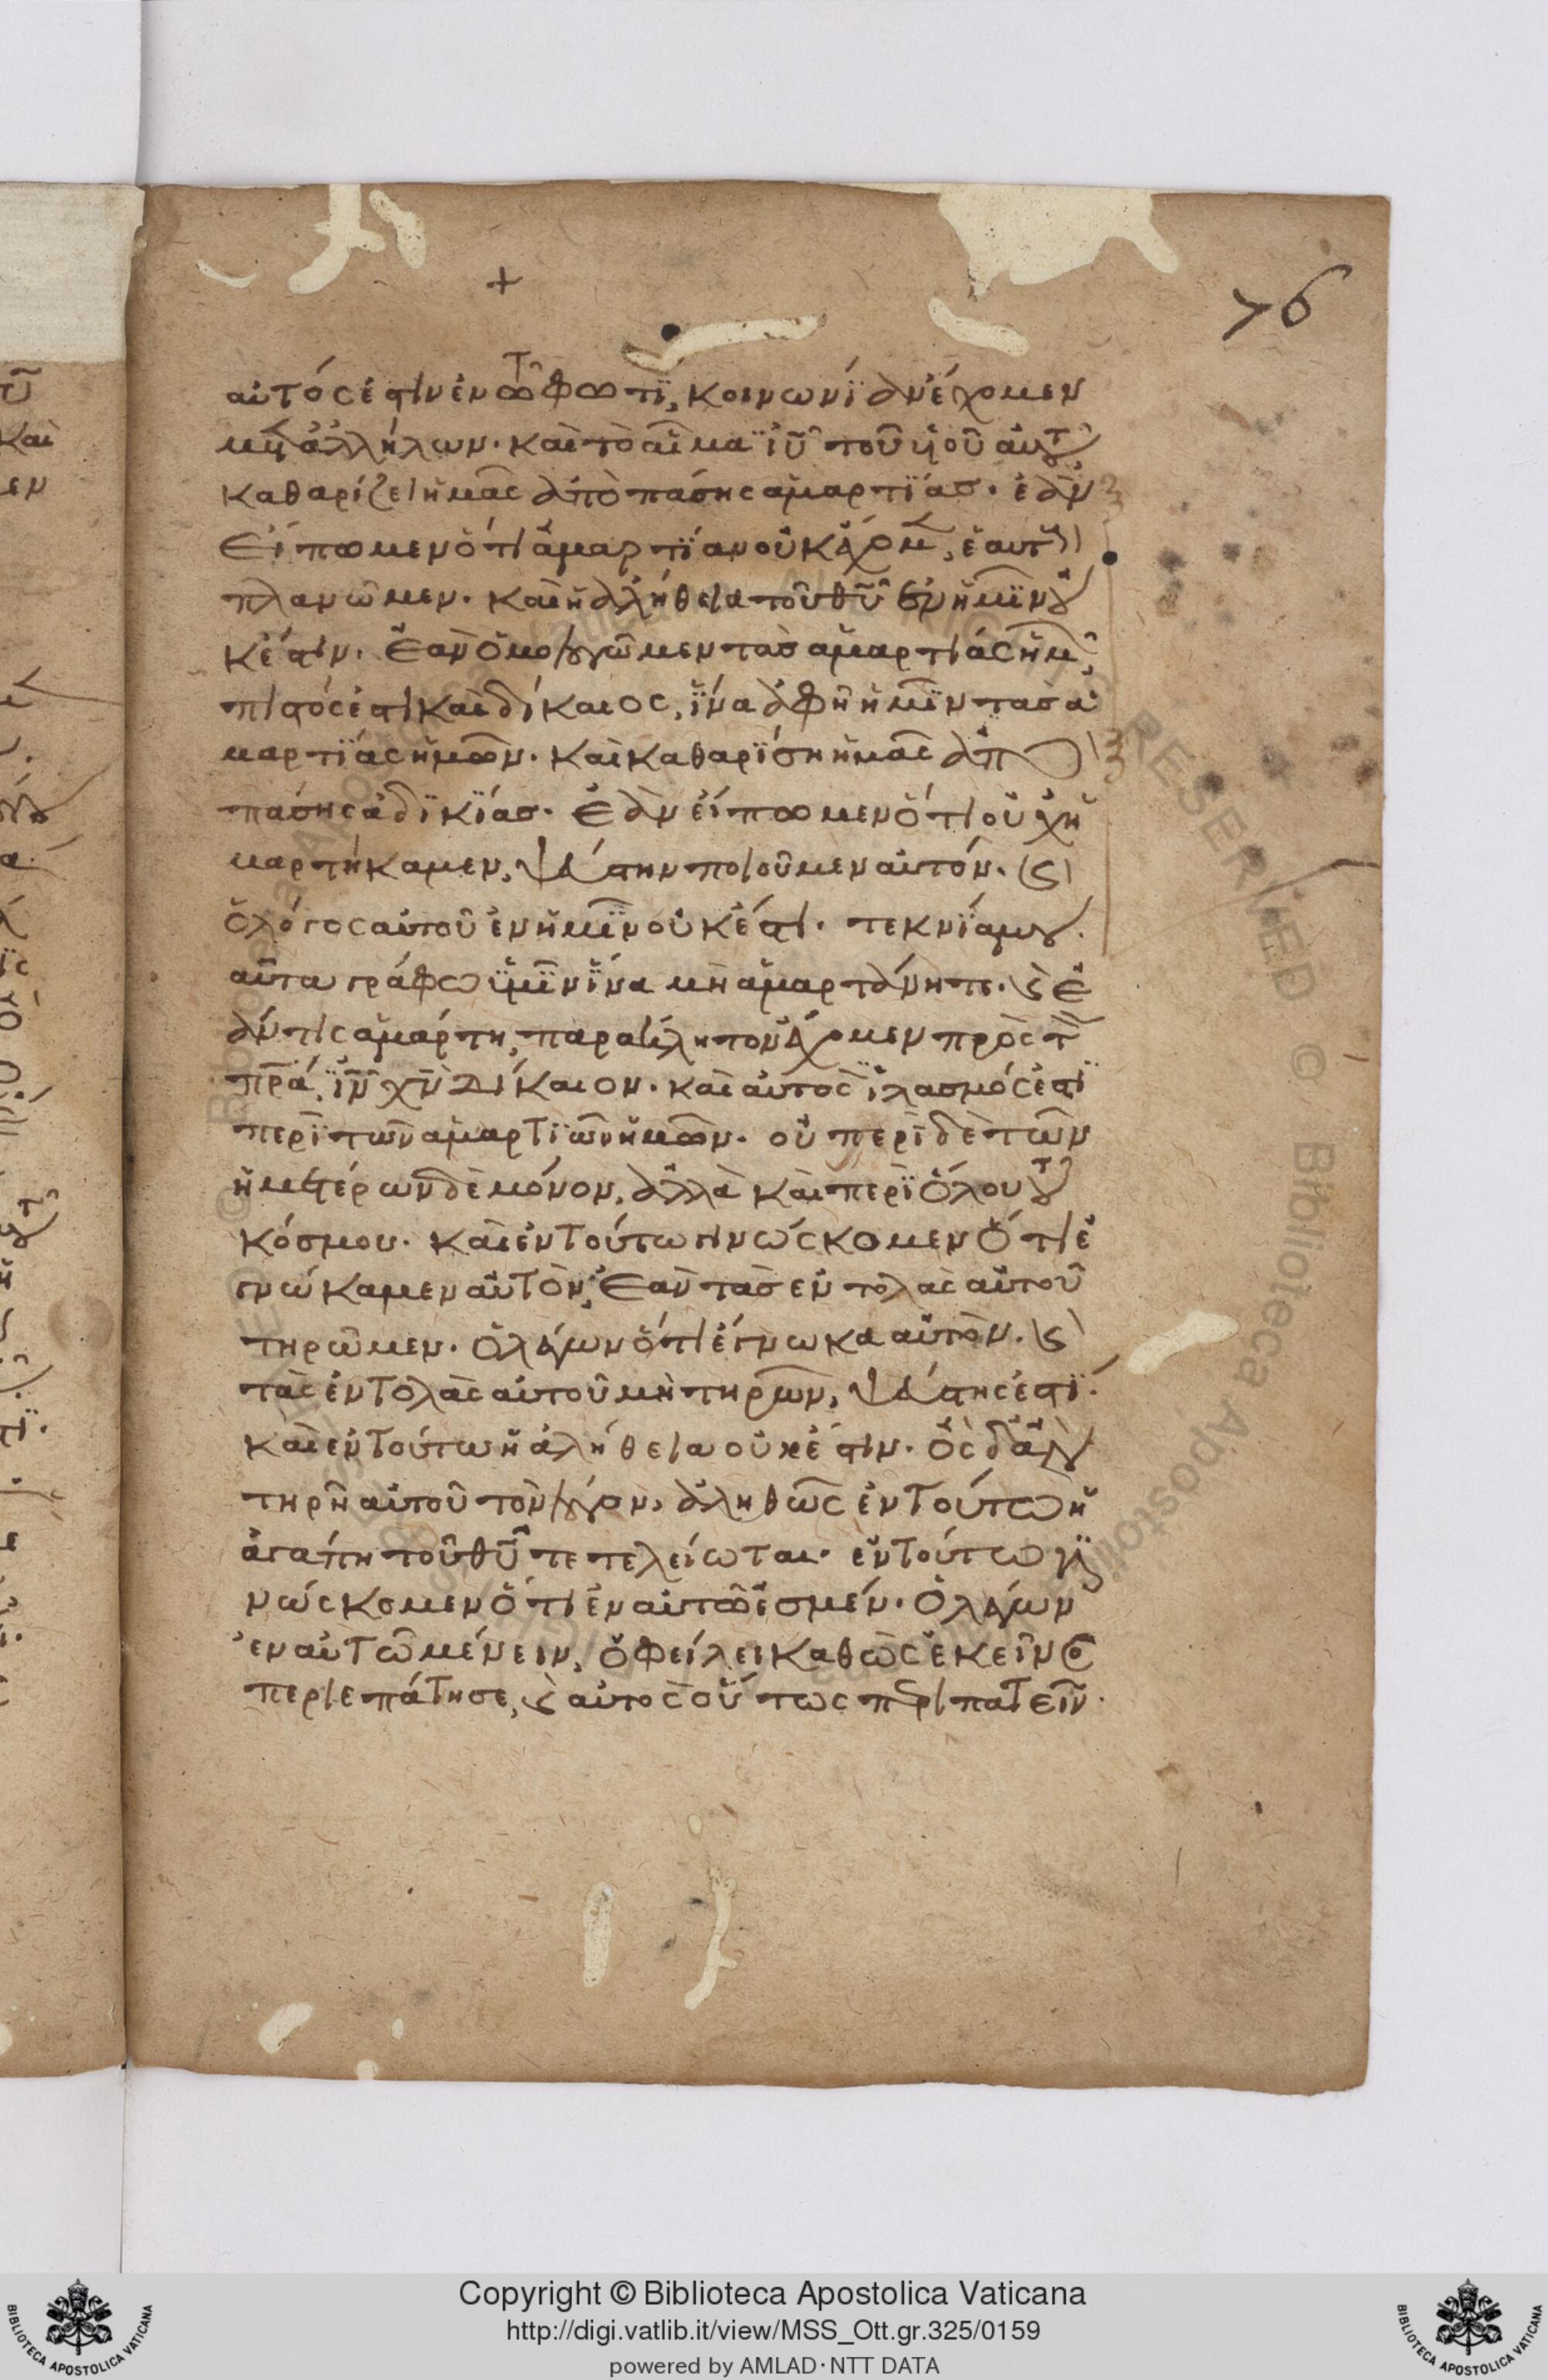 +
76
αὐτός ἐστιν ἐν τῶ φωτϊ, κοινωνίϊαν ἔχομεν
μετ ἀλλήλων. καὶ τὸ αἷμα ϊυ τοῦ υἱοῦ αὐτοῦ
καθαρίζει ἡμᾶς ἀπὸ πάσης ἁμαρτϊάσ. ἐὰν
Εἴπωμεν ὅτι ἁμαρτϊαν οὐκ ἔχομ, ἑαυτοὺς
πλανῶμεν. καὶ ἡ ἀλήθεια τοῦ θυ ἐν ἡμῖν οὐ
κ ἔστιν. Ἐὰν ὁμολογῶμεν τὰσ ἁμαρτιάς ἡμῶν,
πιστός ἐστι καὶ δίκαιος, ἵνα ἀφῆ ἡμῖν τὰσ ἁ
μαρτϊάς ἡμῶν. καὶ καθαρϊση ἡμᾶς ἀπὸ
πάσης ἀδϊκϊάσ. Ἐὰν εἴπωμεν ὅτι οὐχ ἡ
μαρτήκαμεν, ψεύστην ποιοῦμεν αὐτόν. ϛ
ὁ λόγος αὐτοῦ ἐν ἡμῖν οὐκ ἔστι. τεκνϊα μου.
αῦτα γράφω ὑμῖν ἵνα μὴ ἁμαρτάνητε. ϛ ἐ
άν τις ἁμάρτη, παράκλητον ἔχομεν πρὸς τ
πρα, ϊν χν δίκαιον. καὶ αὐτὸς ϊλασμός ἐστϊ
περϊ τῶν ἁμαρτϊῶν ἡμῶν. οὐ περϊ δὲ τῶν
ἡμετέρων δὲ μόνον, ἀλλὰ καὶ περϊ ὅλου τοῦ
κόσμου. καὶ ἐν τούτω γινώςκομεν ὅτι ἐ
γνώκαμεν αὐτὸν, Ἐὰν τὰσ ἐντολὰς αὐτοῦ
τηρῶμεν. ὁ λέγων ὅτι ἔγνωκα αὐτὸν. ϛ
τὰς ἐντολὰς αὐτοῦ μὴ τηρῶν, ψεύστης ἐστϊ.
καὶ ἐν τούτω ἡ ἀλήθεια οὐκ ἔστιν. ὃς δἂν
τηρῆ αὐτοῦ τὸν λόγον, ἀληθῶς ἐν τούτω ἡ
ἀγάπη τοῦ θυ τετελείωται. ἐν τούτω γϊ
νώςκομεν ὅτι ἐν αὐτῶ ἐσμέν. Ὁ λέγων
ἐν αὐτῶ μένειν, ὀφείλει καθὼς ἐκεῖνος
περιεπάτησε, ϛ αὐτὸς οὕτως περιπατεῖν.
Copyright © Biblioteca Apostolica Vaticana
http://digi.vatlib.it/view/MSS_Ott.gr.325/0159
powered by AMLAD·NTT DATA